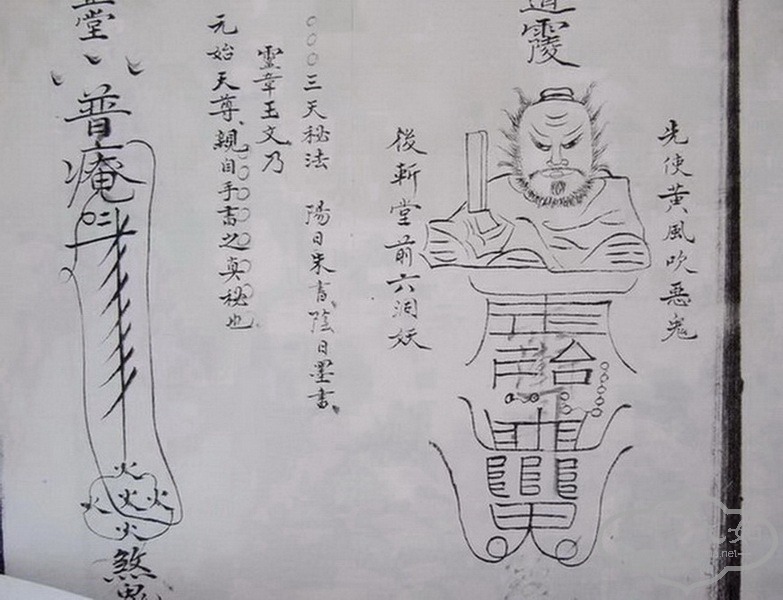 先使黄風吹惡鬼
道
後斬堂前六洞妖
○○○三天秘法　陽日朱書陰日墨書
靈章玉文乃
元始天尊親自手書之真秘也
堂
普庵
火
火火火
火
煞鬼